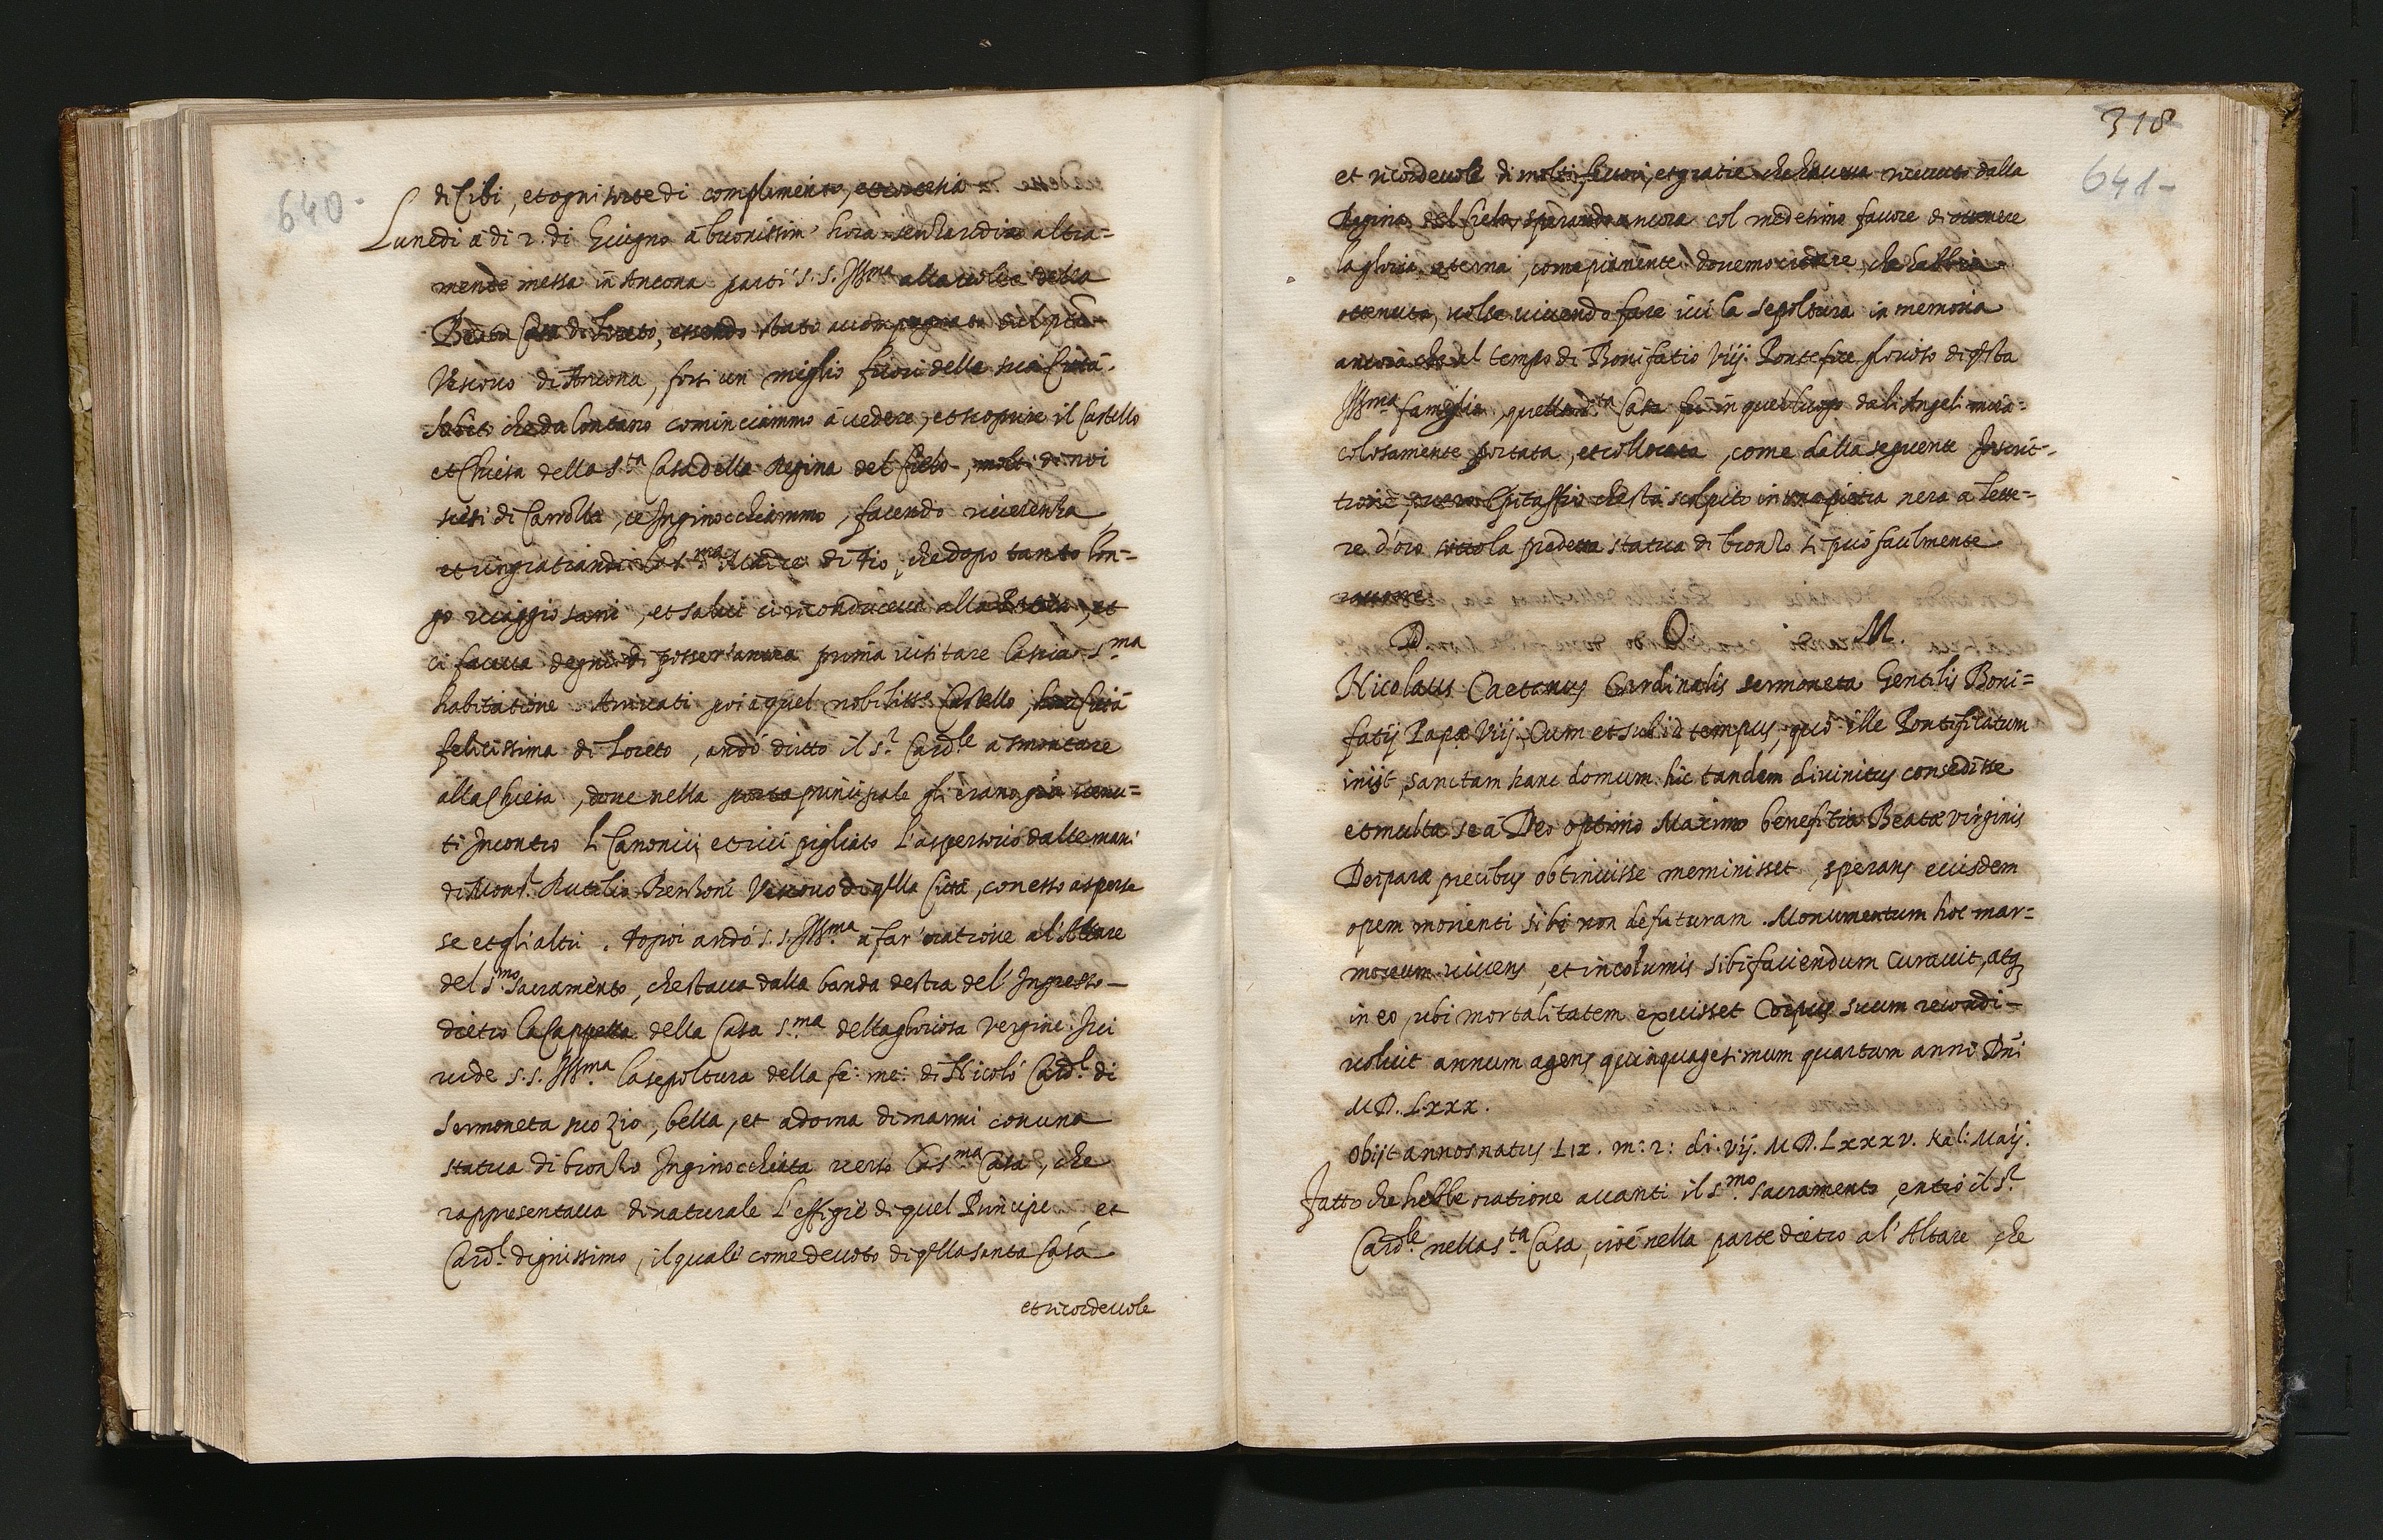 640.
di Cibi, et ogni sorte di complimento, et cortesia
Lunedi a di 2. di Giugno a buonissim' hora senza udire altra=
mente messa in Ancona parti S. S. Illma alla volta della
Beata Casa di Loreto, essendo stato accompagnato dal pto
Vescovo di Ancona, fors' un miglio fuori della sua Città.
Subito che da lontano cominciammo a vedere, et scoprire il Castello
et Chiesa della Sta Casa della Regina del Cielo, molti di noi
scesi di Carrozza, ce Inginocchiammo, facendo riverenza,
et ringratiando la Sma Madre di Dio, che dopo tanto lon=
go viaggio sani, et salvi ci riconduceva alla Patria, et
ci faceva degni di poter ancora prima visitare la sua Sma
habitatione. Arrivati poi a quel nobiliss.o Castello, hora Città
felicissima di Loreto, andò diritto il Sr Cardle a smontare
alla Chiesa, dove nella porta principale gli erano già venu=
ti Incontro li Canonici, et ivi pigliato l'aspersorio dalle mani
di Monsr. Rutilio Benzoni Vescovo di qlla Città, con esso asperse
se et gli altri. Dopoi andò S. S. Illma a far' oratione al' Altare
del Smo Sacramento, che stava dalla banda destra del' Ingresso
dietro la Cappella della Casa Sma della gloriosa Vergine. Ivi
vide S. S. Illma la sepoltura della fe: me: di Nicolò Cardl. di
Sermoneta suo Zio, bella, et adorna di marmi con una
statua di bronzo Inginocchiata verso la Sma Casa, che
rappresentava di naturale l'effigie di quel Principe, et
Cardl. dignissimo, il quale come devoto di qlla santa Casa
et ricordevole
318
641-
et ricordevole di molti favori, et gratie che haveva ricevuto dalla
Regina del Cielo, sperando ancora col medesimo favore di ottenere
la gloria eterna, come piamente dovemo credere, che habbia
ottenuta, volse vivendo fare ivi la sepoltura in memoria
ancora che al tempo di Bonifatio Viij. Pontefice glorioso di qsta
Illma famiglia, quella Sta Casa fu in quel luogo dali Angeli mira=
colosamente portata, et collocata, come dalla seguente Inscrit=
tione, overo Epitaffio che sta scolpito in una pietra nera a lette=
re d'oro sotto la predetta statua di bronzo si può facilmente
D. O. M.
Nicolaus Caetanus Cardinalis Sermoneta Gentilis Boni=
fatij Papæ Viij. Cum et sub id tempus, quo ille Pontificatum
inijt, sanctam hanc domum hic tandem divinitus consedisse
et multa se a Deo optimo Maximo benefitia Beatæ Virginis
Deiparæ precibus obtinuisse meminisset, sperans eiusdem
opem morienti sibi non defuturam. Monumentum hoc mar=
moreum vivens, et incolumis sibi faciendum curavit, atq
in eo, ubi mortalitatem exuisset Corpus suum recondi
voluit annum agens quinquagesimum quartum anni Dñi
M D. Lxxx.
Obijt annos natus Lix. m: 2: di: vij. M D. Lxxxv. Kal: Maij.
Fatto che hebbe oratione avanti il Smo Sacramento, entrò il Sr
Cardle nella Sta Casa, cioè nella parte dietro a l' Altare, che